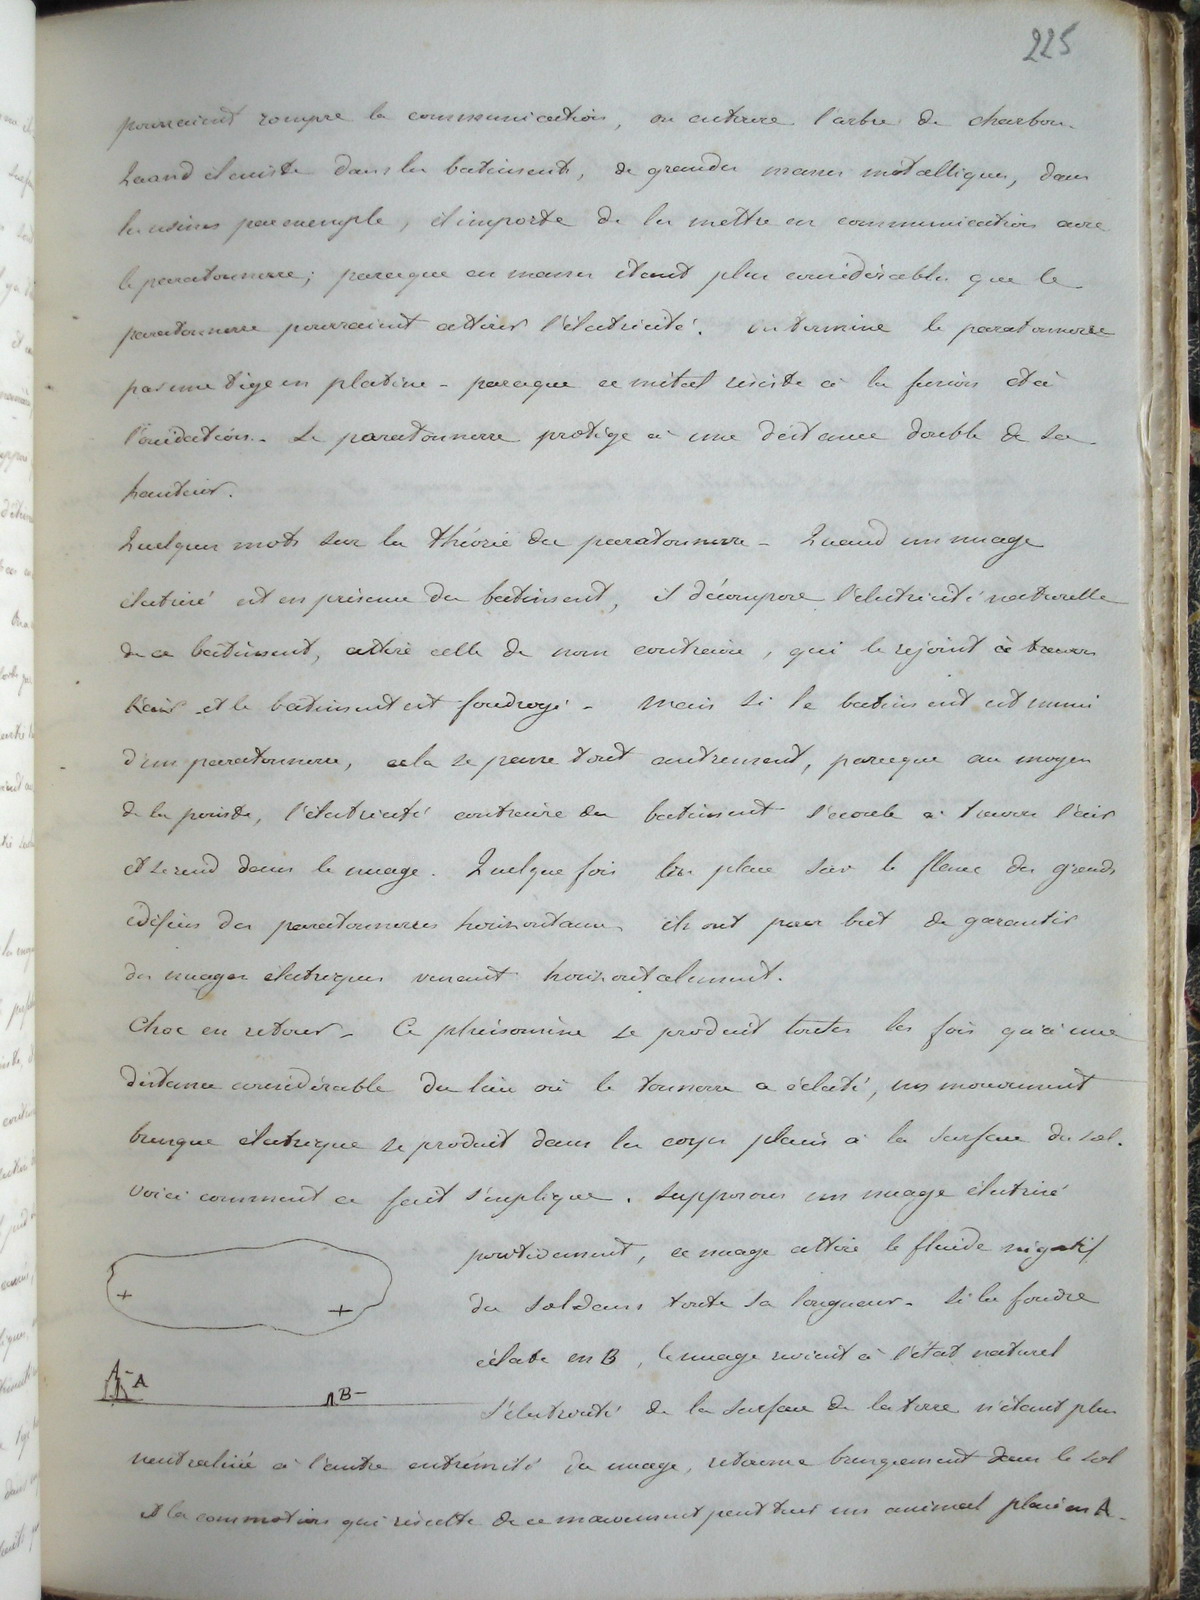 225
pourraient rompre la communication, on entoure l'arbre de charbon.
Quand il existe dans les batiments, de grandes masses métalliques, dans
les usines par exemple, il importe de les mettre en communication avec
le paratonnerre; parceque ces masses étant plus considérables que le
paratonnerre pourraient attirer l'électricité. On termine le paratonnerre
par une tige en platine - parceque ce métal résiste à la fusion et à
l'oxidation. Le paratonnerre protège à une distance double de sa
hauteur.
Quelques mots sur la théorie du paratonnerre - Quand un nuage
électrisé est en présence du batiment, il décompose l'électricité naturelle
de ce batiment, attire celle de nom contraire, qui le rejoint à travers
l'air et le batiment est foudroyé - Mais si le batiment est muni
d'un paratonnerre, cela se passe tout autrement, parceque au moyen
de la pointe, l'électricité contraire du batiment s'écoule à travers l'air
et se rend dans le nuage. Quelque fois l'on place sur le flanc des grands
édifices des paratonnerres horizontaux ils ont pour but de garantir
des nuages électriques venant horizontalement.
Choc en retour - Ce phénomène se produit toutes les fois qu'à une
distance considérable du lieu où le tonnerre a éclaté, un mouvement
brusque électrique se produit dans les corps placés à la surface du sol.
Voici comment ce fait s'explique. Supposons un nuage électrisé
positivement, ce nuage attire le fluide négatif
du sol dans toute sa longueur - Si la foudre
éclate en B, le nuage revient à l'état naturel
l'électricité de la surface de la terre n'étant plus
neutralisée à l'autre extrémité du nuage, retourne brusquement dans le sol
et la commotion qui résulte de ce mouvement peut tuer un animal placé en A.
+ +
- A
B -